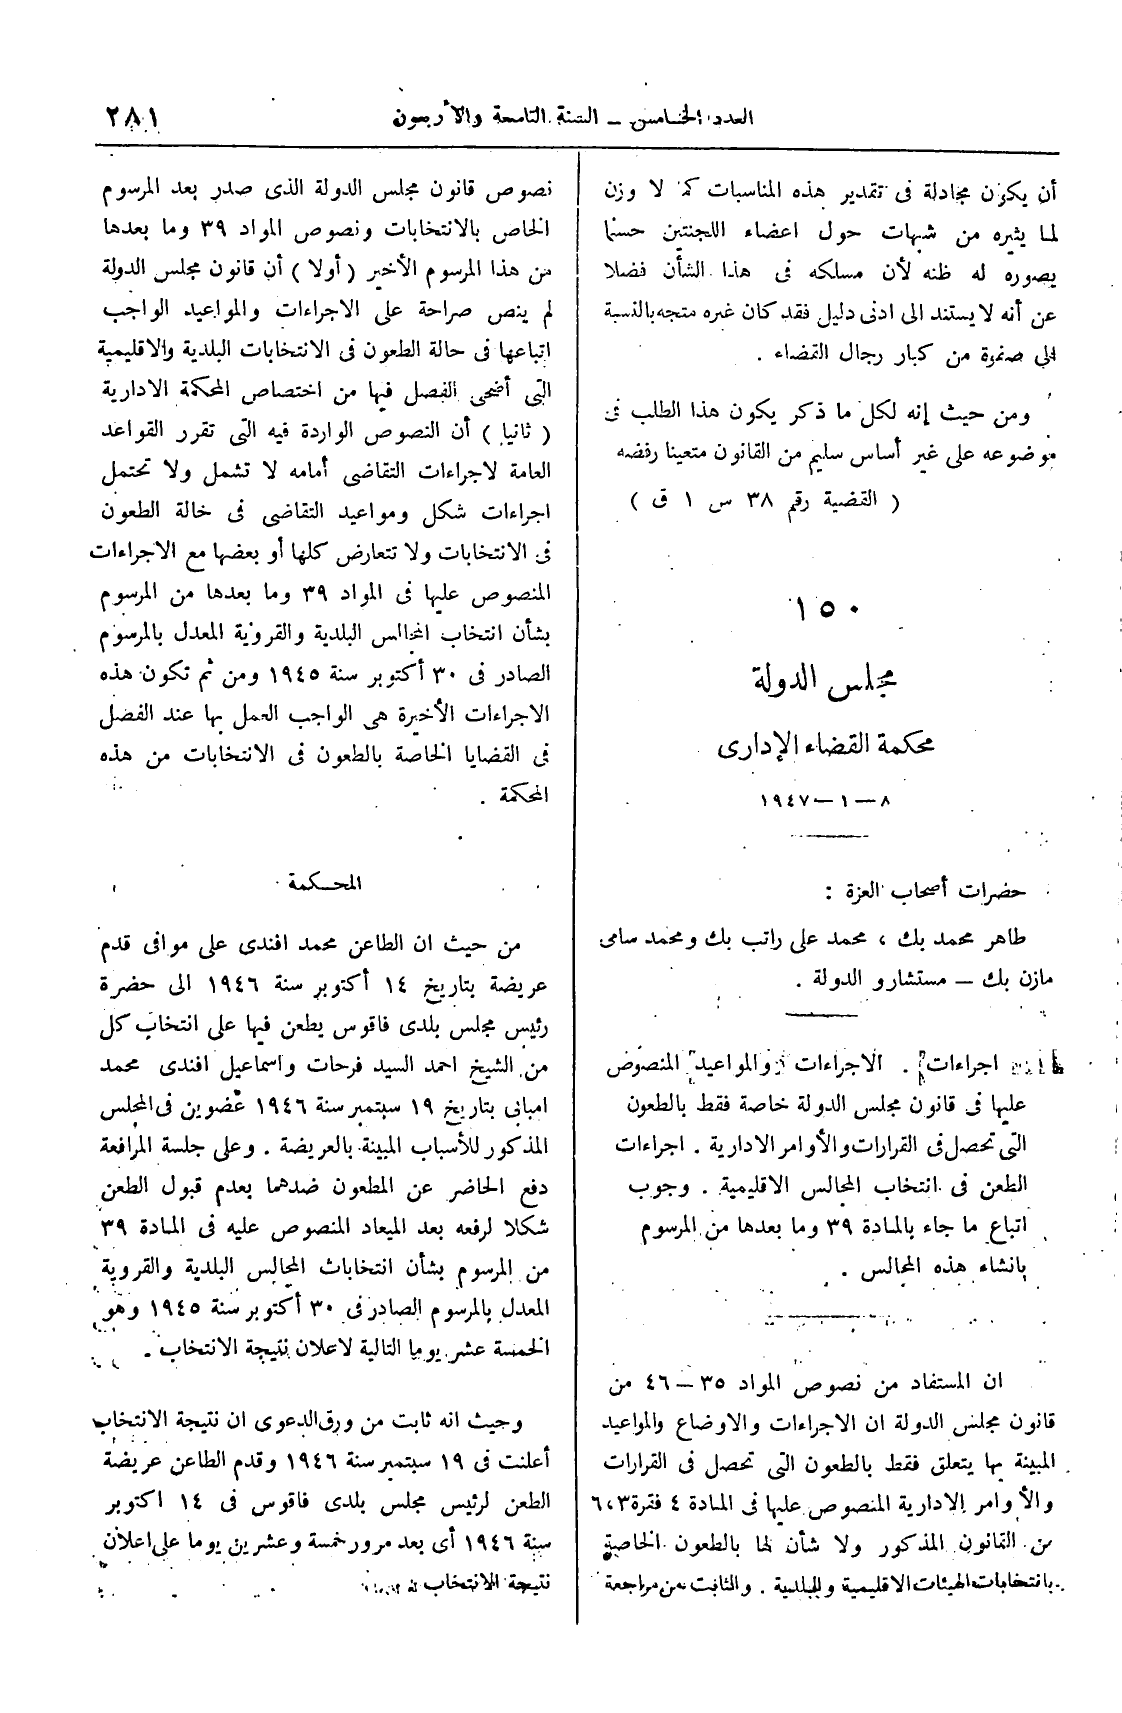 العدد الخامس – السنة التاسعة والأربعون
٢٨١
أن يكون مجادلة فى تقدير هذه المناسبات كما لا وزن
لما يثيره من شبهات حول اعضاء اللجنتين حسبما
يصوره له ظنه لأن مسلكه فى هذا الشأن فضلا
عن أنه لا يستند الى ادنى دليل فقد كان غيره متجه بالنسبة
الى صفوة من كبار رجال القضاء .
ومن حيث إنه لكل ما ذكر يكون هذا الطلب فى
موضوعه على غير أساس سليم من القانون متعينا رفضه
( القضية رقم ٣٨ س ١ ق )
١٥٠
مجلس الدولة
محكمة القضاء الإدارى
٨ – ١ – ١٩٤٧
حضرات أصحاب العزة :
طاهر محمد بك ، محمد على راتب بك ومحمد سامى
مازن بك – مستشارو الدولة .
اجراءات . الاجراءات والمواعيد المنصوص
عليها فى قانون مجلس الدولة خاصة فقط بالطعون
التى تحصل فى القرارات والأوامر الادارية . اجراءات
الطعن فى انتخاب المجالس الاقليمية . وجوب
اتباع ما جاء بالمادة ٣٩ وما بعدها من المرسوم
بانشاء هذه المجالس .
ان المستفاد من نصوص المواد ٣٥ – ٤٦ من
قانون مجلس الدولة ان الاجراءات والاوضاع والمواعيد
المبينة بها يتعلق فقط بالطعون التى تحصل فى القرارات
والأوامر الادارية المنصوص عليها فى المادة ٤ فقرة ٣ ، ٦
من القانون المذكور ولا شأن لها بالطعون الخاصة
بانتخابات الهيئات الاقليمية والبلدية . والثابت من مراجعة
نصوص قانون مجلس الدولة الذى صدر بعد المرسوم
الخاص بالانتخابات ونصوص المواد ٣٩ وما بعدها
من هذا المرسوم الأخير ( أولا ) أن قانون مجلس الدولة
لم ينص صراحة على الاجراءات والمواعيد الواجب
اتباعها فى حالة الطعون فى الانتخابات البلدية والاقليمية
التى أضحى الفصل فيها من اختصاص المحكمة الادارية
( ثانيا ) أن النصوص الواردة فيه التى تقرر القواعد
العامة لاجراءات التقاضى أمامه لا تشمل ولا تحتمل
اجراءات شكل ومواعيد التقاضى فى حالة الطعون
فى الانتخابات ولا تتعارض كلها أو بعضها مع الاجراءات
المنصوص عليها فى المواد ٣٩ وما بعدها من المرسوم
بشأن انتخاب المجالس البلدية والقروية المعدل بالمرسوم
الصادر فى ٣٠ أكتوبر سنة ١٩٤٥ ومن ثم تكون هذه
الاجراءات الأخيرة هى الواجب العمل بها عند الفصل
فى القضايا الخاصة بالطعون فى الانتخابات من هذه
المحكمة .
المحكمة
من حيث ان الطاعن محمد افندى على موافى قدم
عريضة بتاريخ ١٤ أكتوبر سنة ١٩٤٦ الى حضرة
رئيس مجلس بلدى فاقوس يطعن فيها على انتخاب كل
من الشيخ احمد السيد فرحات واسماعيل افندى محمد
امبابى بتاريخ ١٩ سبتمبر سنة ١٩٤٦ عضوين فى المجلس
المذكور للأسباب المبينة بالعريضة . وعلى جلسة المرافعة
دفع الحاضر عن المطعون ضدهما بعدم قبول الطعن
شكلا لرفعه بعد الميعاد المنصوص عليه فى المادة ٣٩
من المرسوم بشأن انتخابات المجالس البلدية والقروية
المعدل بالمرسوم الصادر فى ٣٠ أكتوبر سنة ١٩٤٥ وهو
الخمسة عشر يوما التالية لاعلان نتيجة الانتخاب .
وحيث انه ثابت من ورق الدعوى ان نتيجة الانتخاب
أعلنت فى ١٩ سبتمبر سنة ١٩٤٦ وقدم الطاعن عريضة
الطعن لرئيس مجلس بلدى فاقوس فى ١٤ اكتوبر
سنة ١٩٤٦ أى بعد مرور خمسة وعشرين يوما على اعلان
نتيجة الانتخاب